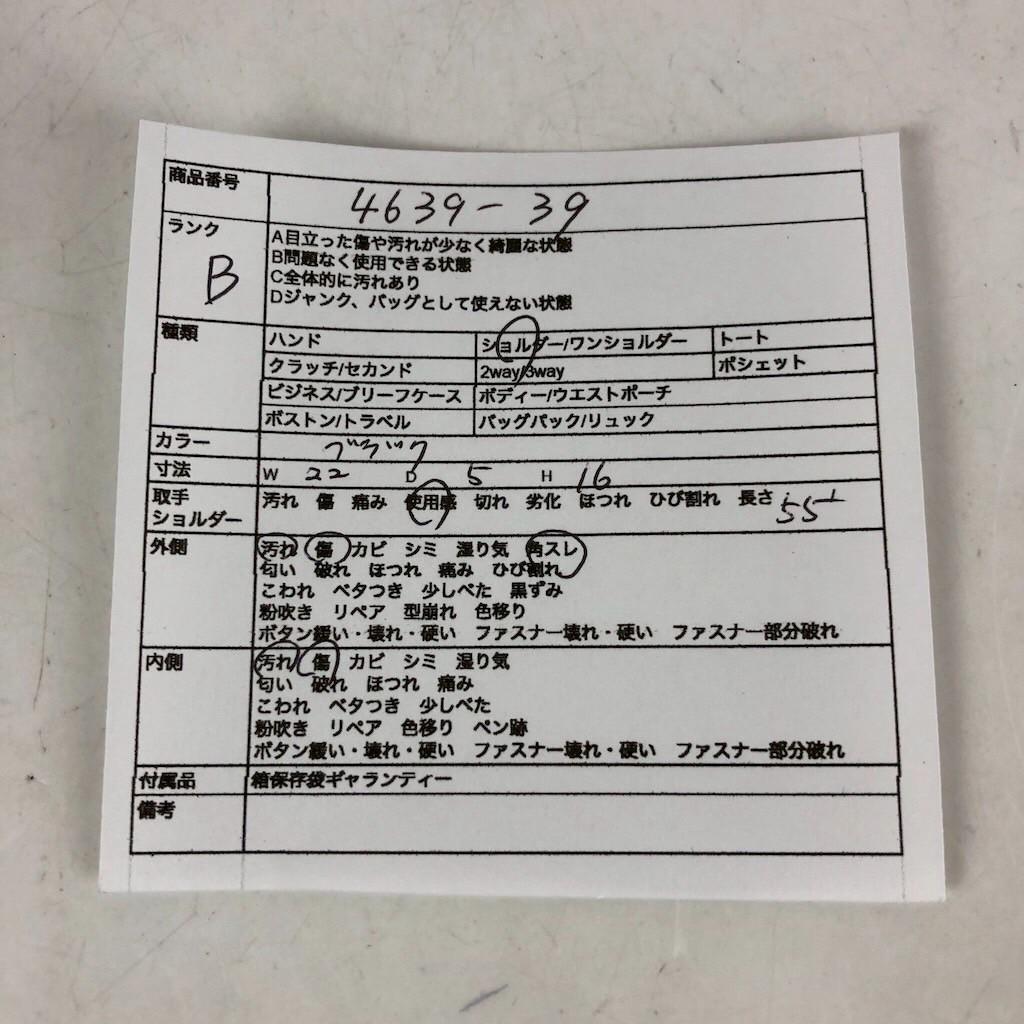 商品番号 4639-39
ランク B
A目立った傷や汚れが少なく綺麗な状態
B問題なく使用できる状態
C全体的に汚れあり
Dジャンク、バッグとして使えない状態
種類 ハンド ショルダー/ワンショルダー トート
クラッチ/セカンド 2way/3way ポシェット
ビジネス/ブリーフケース ボディー/ウエストポーチ
ボストン/トラベル バッグパック/リュック
カラー ブラック
寸法 W 22 D 5 H 16
取手 汚れ 傷 痛み 使用感 切れ 劣化 ほつれ ひび割れ 長さ 55
ショルダー
外側 汚れ 傷 カビ シミ 湿り気 角スレ
匂い 破れ ほつれ 痛み ひび割れ
こわれ ベタつき 少しべた 黒ずみ
粉吹き リペア 型崩れ 色移り
ボタン緩い・壊れ・硬い ファスナー壊れ・硬い ファスナー部分破れ
内側 汚れ 傷 カビ シミ 湿り気
匂い 破れ ほつれ 痛み
こわれ ベタつき 少しべた
粉吹き リペア 色移り ペン跡
ボタン緩い・壊れ・硬い ファスナー壊れ・硬い ファスナー部分破れ
付属品 箱保存袋ギャランティー
備考